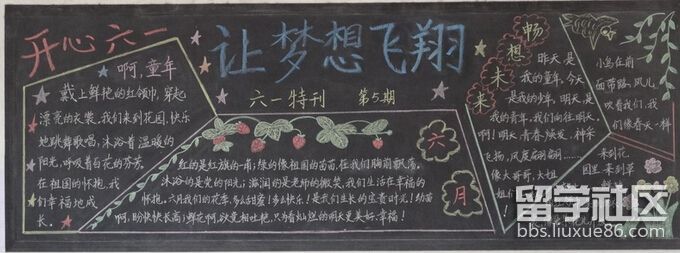 开心六一
让梦想飞翔
六一特刊 第5期
啊,童年
戴上鲜艳的红领巾,穿起
漂亮的衣裳,我们来到花园,快乐
地跳舞歌唱,沐浴着温暖的
阳光,呼吸着百花的芬芳。
在祖国的怀抱,我
们幸福地成
长。
红的是红旗的一角;绿的像祖国的苗苗,在我们胸前飘荡。
沐浴的是党的阳光;滋润的是老师的微笑,我们生活在幸福的
怀抱。六月我们的花季,多么甜蜜!多么快乐!是我们生长的宝贵时光!幼苗
啊,盼快快长高;鲜花啊,欲竞相吐艳,只为着灿烂的明天更美好、幸福!
六
月
畅想未来
昨天是
我的童年,今天
是我的少年,明天是
我的青年,我们向往明天
啊!明天青春焕发、神采
飞扬,风度翩翩……
像大哥哥、大姐
姐们
小鸟在前
面带路,风儿
吹着我们,我
们像春天一样
来到花
园里 来到草
留学社区
bbs.liuxue86.com